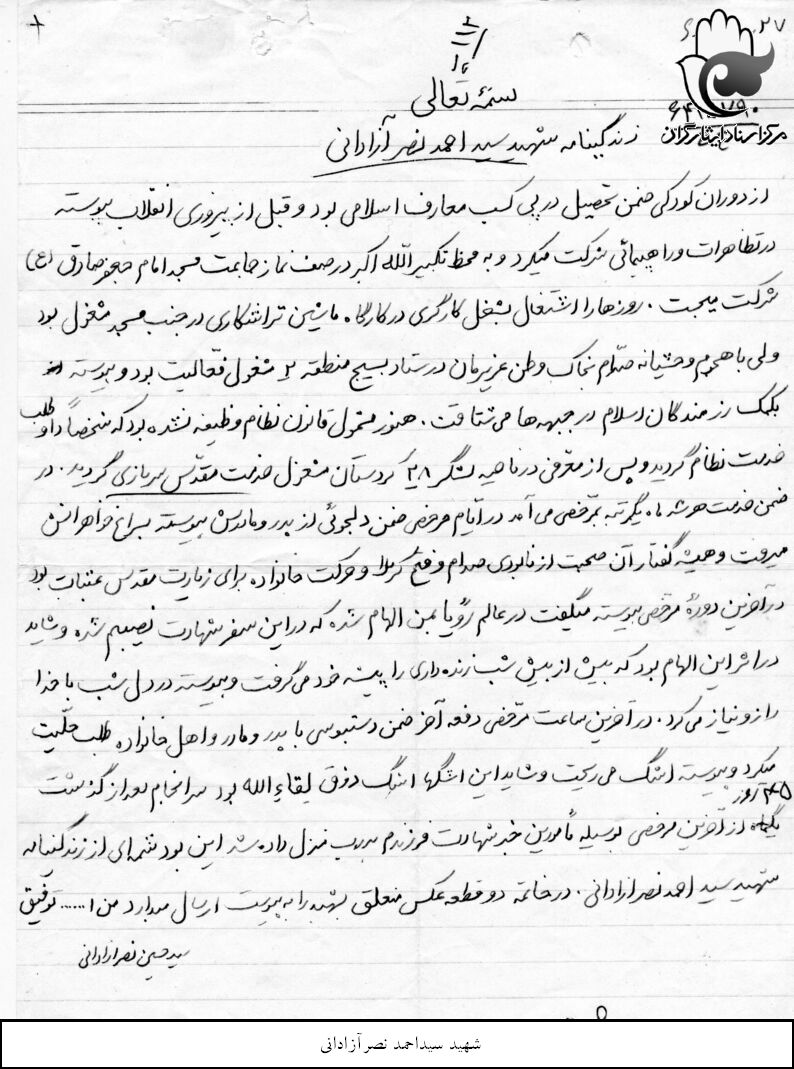 بسمه تعالی
زندگینامه شهید سید احمد نصر آزادانی
مرکز اسناد ایثارگران
از دوران کودکی ضمن تحصیل در پی کسب معارف اسلامی بود و قبل از پیروزی انقلاب پیوسته
در تظاهرات و راهپیمائی شرکت میکرد و به محظ تکبیر الله اکبر در صف نماز جماعت مسجد امام جعفر صادق (ع)
شرکت میجست . روزها را اشتغال بشغل کارگری در کارگاه ماشین تراشکاری در جنب مسجد مشغول بود
ولی با هجوم وحشیانه صدام بخاک وطن عزیزمان در ستاد بسیج منطقه ۲ مشغول فعالیت بود و پیوسته
بکمک رزمندگان اسلام در جبهه ها می شتافت . هنوز مشمول قانون نظام وظیفه نشده بود که شخصاً داوطلب
خدمت نظام گردید و پس از معرفی در ناحیه لشگر ۲۸ کردستان مشغول خدمت مقدس سربازی گردید . در
ضمن خدمت هر سه ماه یکمرتبه بمرخصی می آمد در ایام مرخصی ضمن دلجوئی از پدر و مادرش پیوسته بسراغ خواهرانش
میرفت و همیشه گفتار آن صحبت از نابودی صدام و فتح کربلا و حرکت خانواده برای زیارت مقدس عتبات بود
در آخرین دورهٔ مرخصی پیوسته میگفت در عالم رؤیا بمن الهام شده که در این سفر شهادت نصیبم شده و شاید
در اثر این الهام بود که بیش از پیش شب زنده داری را پیشه خود می گرفت و پیوسته در دل شب با خدا
راز و نیاز می کرد . در آخرین ساعت مرخصی دفعه آخر ضمن دستبوسی با پدر و مادر و اهل خانواده طلب حلّیت
میکرد و پیوسته اشگ می ریخت و شاید این اشگها اشگ ذوق لقاء الله بود سرانجام بعد از گذشت
۴۵ روز از آخرین مرخصی بوسیله مأمورین خبر شهادت فرزندم بدرب منزل داده شد این بود شمه ای از زندگینامه
شهید سید احمد نصر آزادانی . در خاتمه دو قطعه عکس متعلق بشهید را به پیوست ارسال میدارد من ا...... توفیق
سید حسین نصر آزادانی
شهید سیداحمد نصرآزادانی